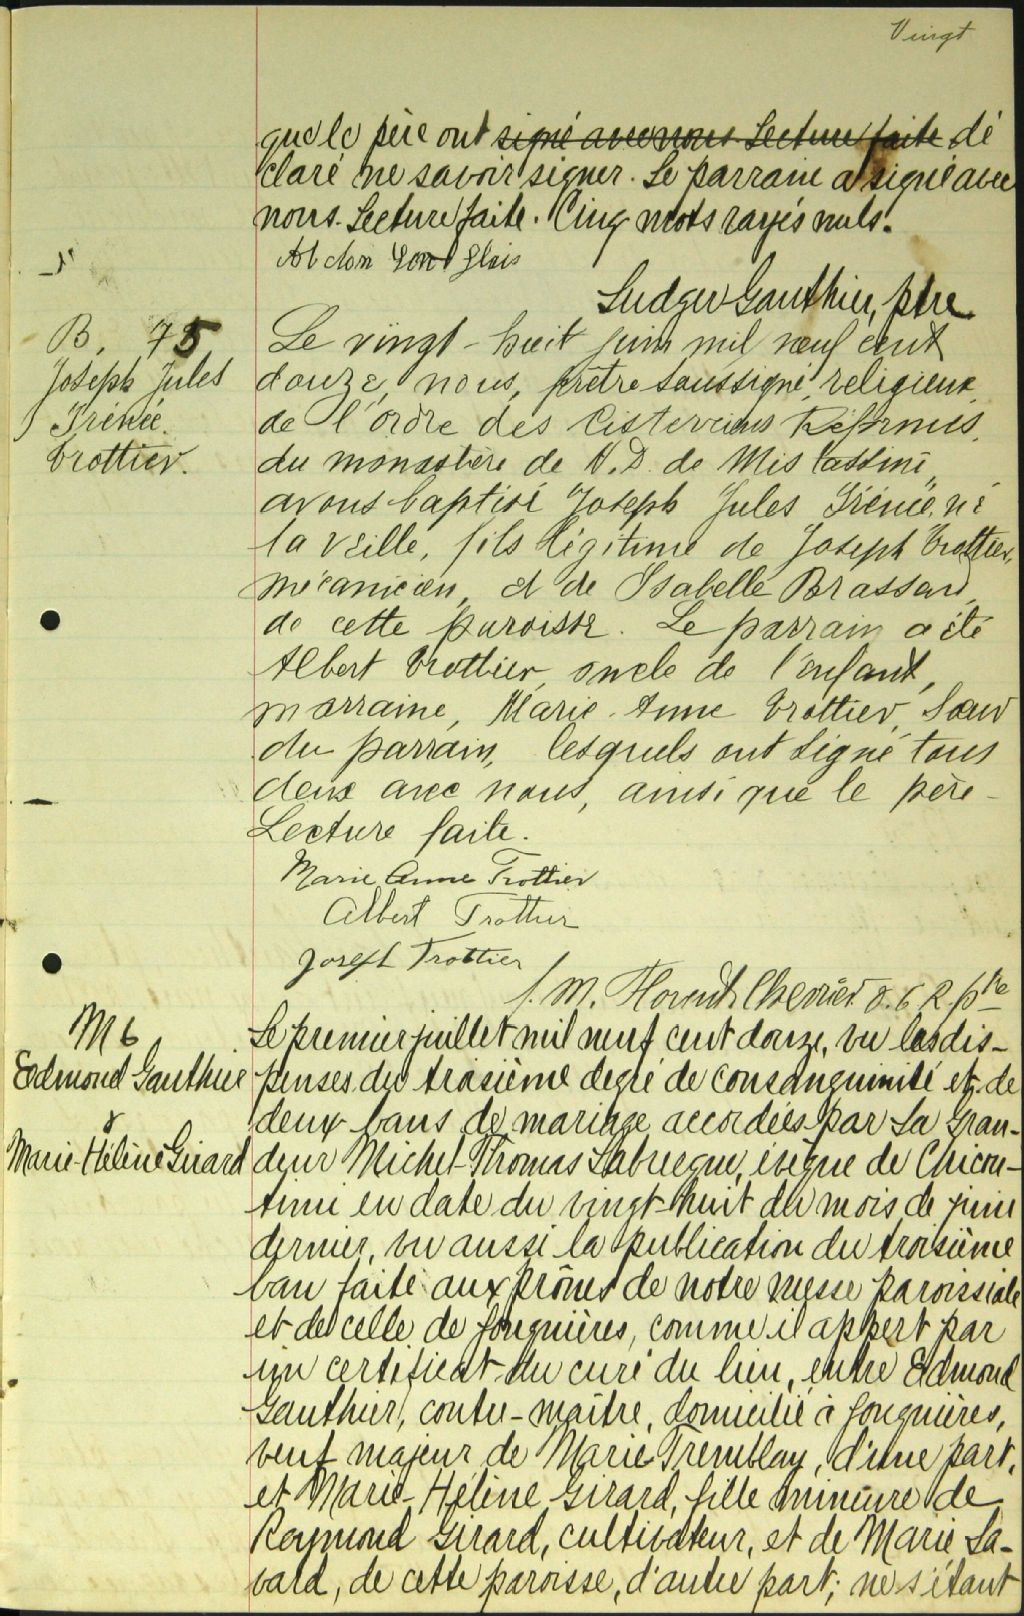 Vingt
que le père ont signé avec nous. Lecture faite dé
claré ne savoir signer. Le parrain a signé avec
nous. Lecture faite. Cinq mots rayés nuls.
Abdon
Ludger Gauthier, ptre
B. 75
Joseph Jules
Irénée
Trottier.
Le vingt-huit juin mil neuf cent
douze, nous, prêtre soussigné, religieux
de l'ordre des Cisterciens Réformés,
du monastère de N. D. de Mistassini,
avons baptisé Joseph Jules Irénée, né
la veille, fils légitime de Joseph Trottier,
mécanicien, et de Isabelle Brassard,
de cette paroisse. Le parrain a été
Albert Trottier, oncle de l'enfant,
marraine, Marie-Anne Trottier, soeur
du parrain, lesquels ont signé tous
deux avec nous, ainsi que le père -
Lecture faite.
Marie Anne Trottier
Albert Trottier
Joseph Trottier
f. M. Florent Cherrier o. c. R. ptre
M 6
Edmond Gauthier
&
Marie-Hélène Girard
Le premier juillet mil neuf cent douze, vu les dis-
penses du troisième degré de consanguinité et de
deux bans de mariage accordées par Sa Gran-
deur Michel-Thomas Labrecque, évêque de Chicou-
timi en date du vingt-huit du mois de juin
dernier, vu aussi la publication du troisième
ban faite aux prônes de notre messe paroissiale
et de celle de Jonquières, comme il appert par
un certificat du curé du lieu, entre Edmond
Gauthier, contre-maître, domicilié à Jonquières,
veuf majeur de Marie Tremblay, d'une part,
et Marie-Hélène Girard, fille mineure de
Raymond Girard, cultivateur, et de Marie Sa-
vard, de cette paroisse, d'autre part; ne s'étant